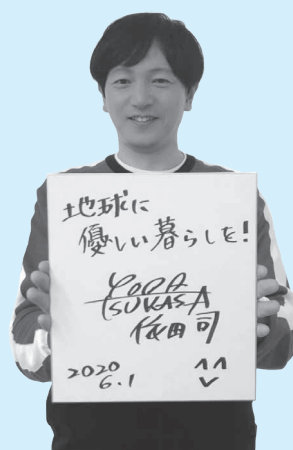 地球に
優しい暮らしを!
YODA
TSUKASA
依田 司
2020
6.1